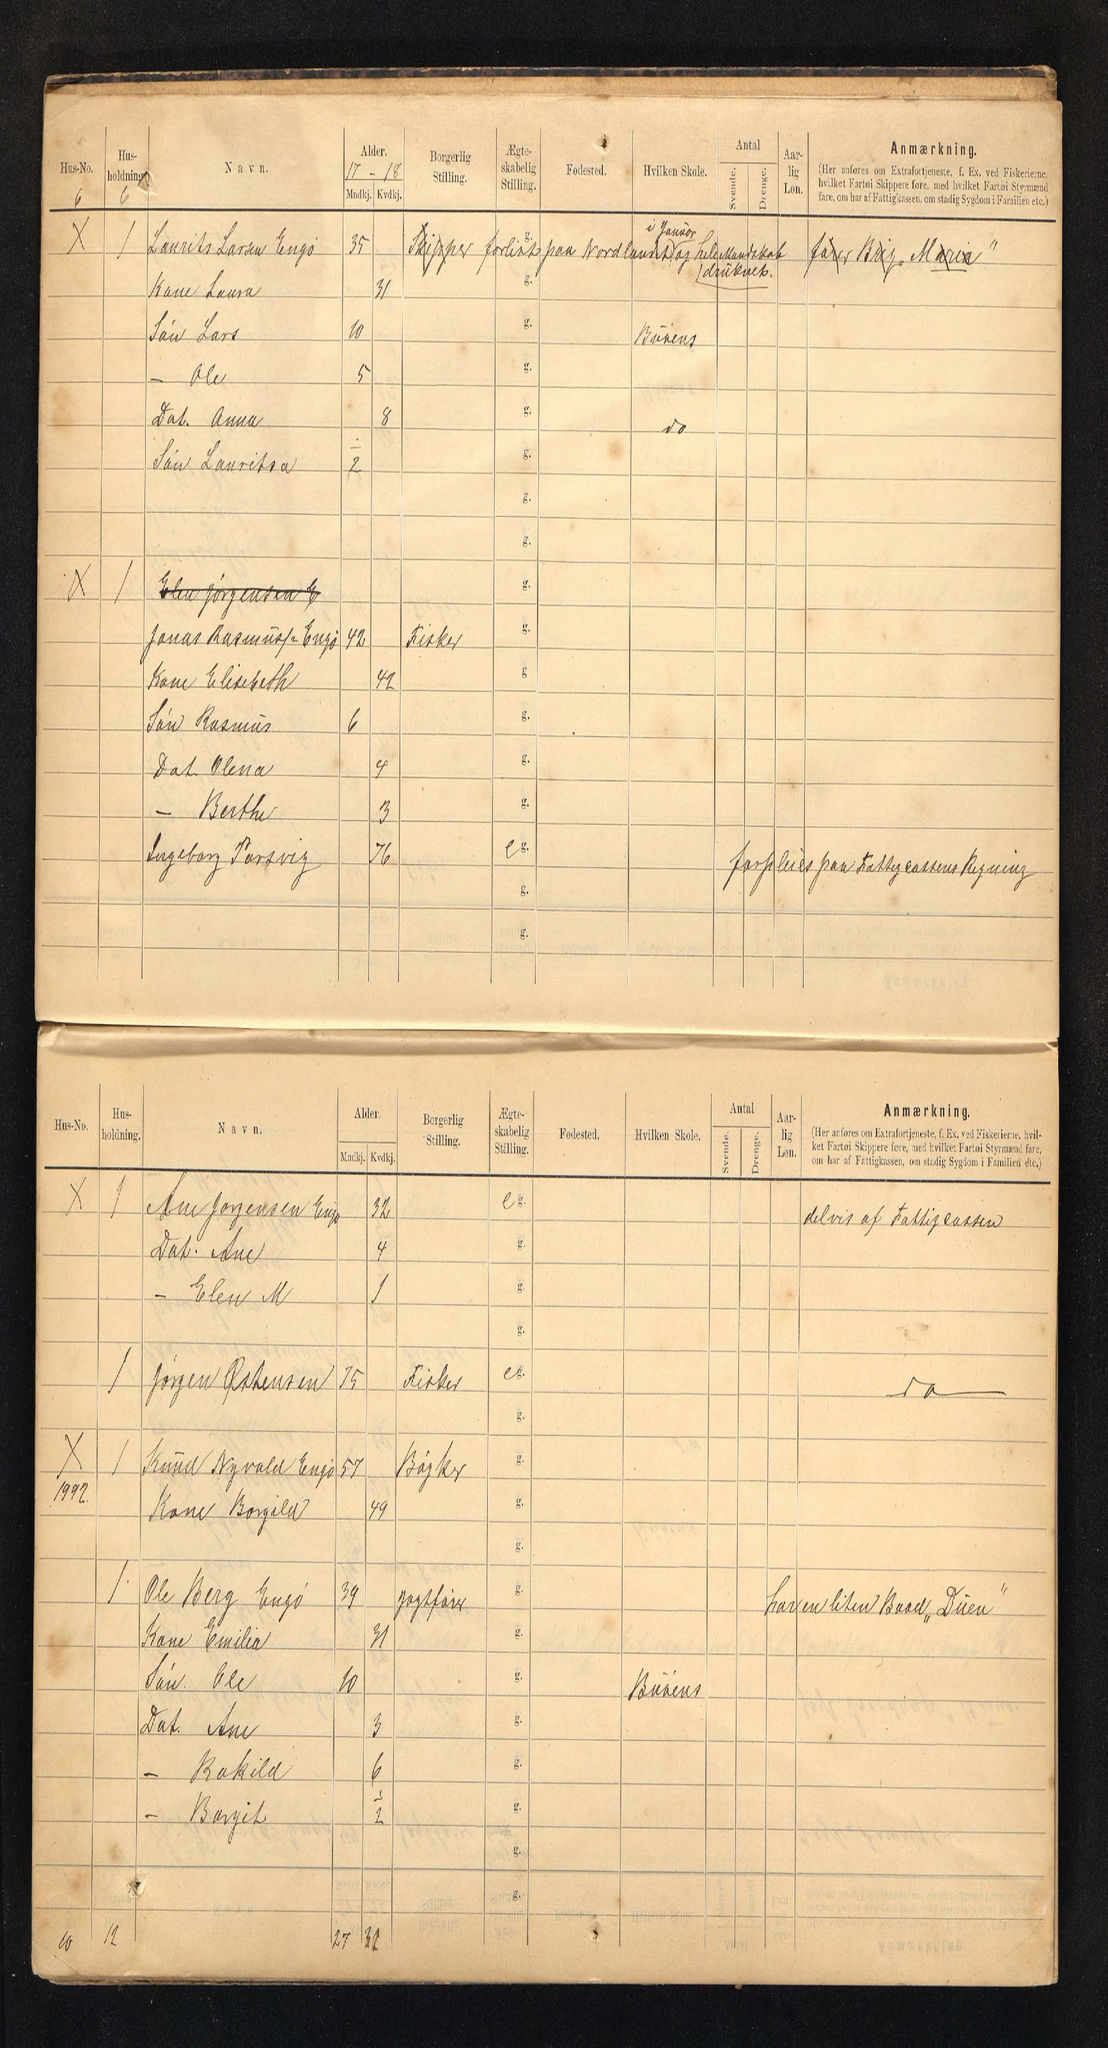 Hus-No. Hus-holdning. Navn. Alder. Borgerlig Stilling. Ægte-skabelig Stilling. Fødested. Hvilken Skole. Antal Aar-lig Løn. Anmærkning.
Mndkj. Kvdkj. Svende. Drenge. (Her anføres om Extrafortjeneste, f. Ex. ved Fiskerierne, hvilket Fartøi Skippere føre, med hvilket Fartøi Styrmænd fare, om har af Fattigkassen, om stadig Sygdom i Familien etc.)
6 6 17 - 18
i Januar
X 1 Laurits Larsen Engö 35 Skipper g. forlist paa Nordlandet og hele Mandskab fører Brig „Maria"
druknet.
Kone Laura 31 g.
Sön Lars 10 g. Buöens
— Ole 5 g.
Dat. Anna 8 g. do
Sön Lauritsa 1/2 g.
g.
g.
X 1 Elen Jørgensen E g.
Jonas Rasmus/n Engö 42 Fisker g.
Kone Elisebeth 42 g
Sön Rasmus 6 g.
Dat. Olena 4 g.
— Berthe 3 g.
Ingeborg Porsvig 76 e g. forpleies paa Fattigcassens Regning
g.
g.
Hus-No. Hus-holdning. Navn. Alder. Borgerlig Stilling. Ægte-skabelig Stilling. Fødested. Hvilken Skole. Antal Aar-lig Løn. Anmærkning.
Mndkj. Kvdkj. Svende. Drenge. (Her anføres om Extrafortjeneste, f. Ex. ved Fiskerierne, hvilket Fartøi Skippere føre, med hvilket Fartøi Styrmænd fare, om har af Fattigkassen, om stadig Sygdom i Familien etc.)
X 1 Ane Jorgensen Engö 32 e g. delvis af Fattigcassen
Dat. Ane 4 g.
— Elen M 1 g.
g.
1 Jörgen Østensen 75 Fisker e g. do
g.
X 1 Knud Nyvold Engö 57 Bögker g.
1992. Kone Borgild 49 g.
g.
1. Ole Berg Engö 39 Jagtfører g. har en liten Baad „Duen"
Kone Emilia 31 g.
Sön Ole 10 g. Buöens
Dat. Ane 3 g.
— Rakild 6 g.
— Borgit 1/2 g.
g.
g.
10 12 27 32